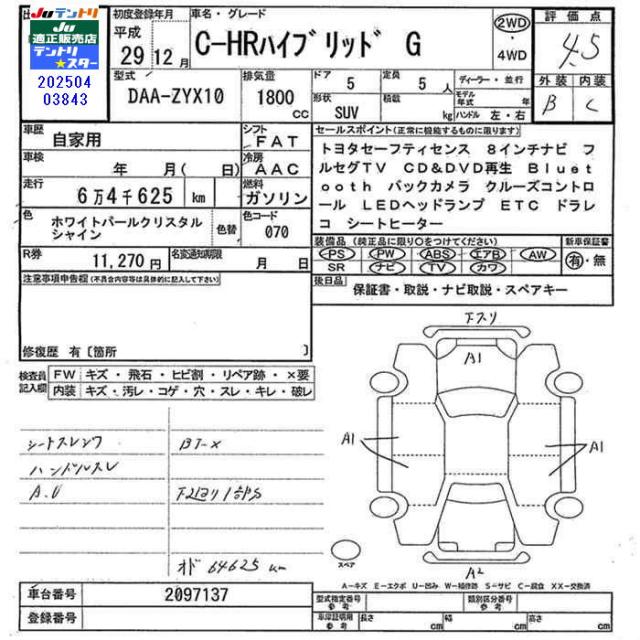 Juテントリ
Ju
適正販売店
テントリ
★スター
202504
03843
初度登録年月
平成
29 12月
車名・グレード
C-HRハイブリッド G
2WD
・
4WD
評価点
4.5
外装 内装
B C
型式
DAA-ZYX10
排気量
1800
cc
ドア 5
定員 5 人
形状 SUV
積載 kg
ディーラー・並行
モデル年式 年
ハンドル 左・右
車歴 自家用
シフト FAT
車検 年 月(日)
冷房 AAC
走行 6万4千625 km
燃料 ガソリン
色 ホワイトパールクリスタル
シャイン
色替
色コード 070
R券 11,270円
名変通知期限 月 日
セールスポイント(正常に機能するものに限ります)
トヨタセーフティセンス 8インチナビ フ
ルセグTV CD&DVD再生 Bluet
ooth バックカメラ クルーズコントロ
ール LEDヘッドランプ ETC ドラレ
コ シートヒーター
装備品(純正品に限り○をつけてください)
PS PW ABS エアB AW
SR ナビ TV カワ
新車保証書
有・無
後日品 保証書・取説・ナビ取説・スペアキー
注意事項申告欄(不具合内容等は具体的に記入して下さい)
修復歴 有〔箇所 〕
検査員
記入欄
FW キズ・飛石・ヒビ割・リペア跡・×要
内装 キズ・汚レ・コゲ・穴・スレ・キレ・破レ
シートスレシワ
ハンドルスレ
A.U
下スリ
A1
A1
A1
A2
スペア
オド 64625 km
A-キズ E-エクボ U-凹み W-補修跡 S-サビ C-腐食 XX-交換済
車台番号 2097137
登録番号
型式指定番号
参考
類別区分番号
参考
車庫証明用
参考
長さ cm
幅 cm
高さ cm